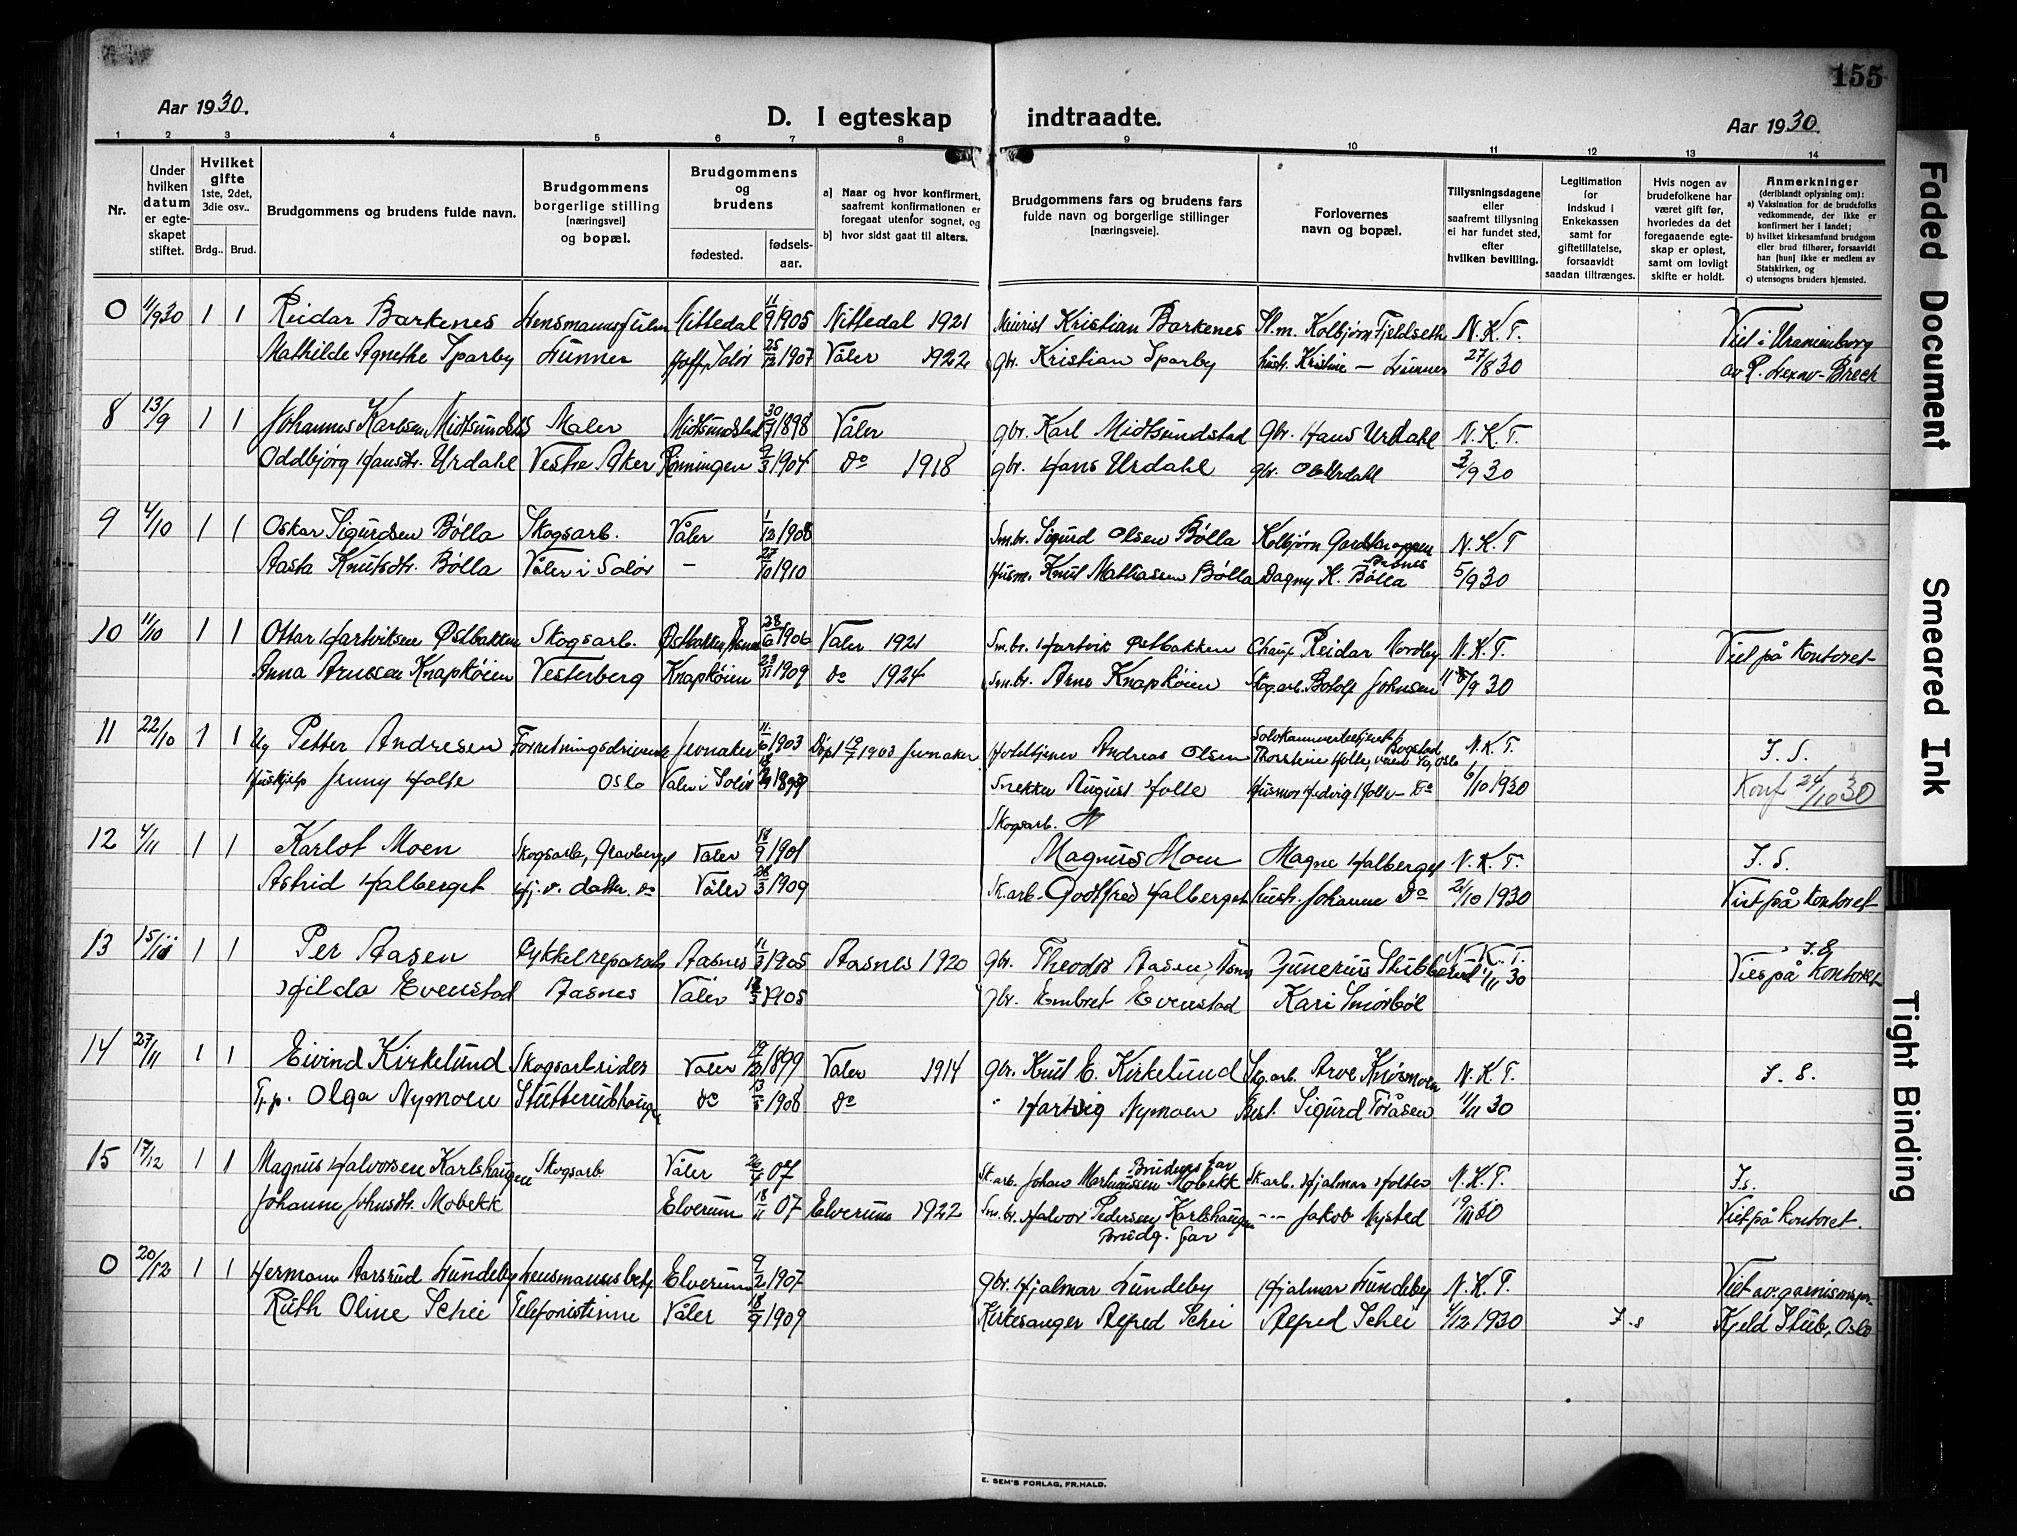 155
Aar 1930.
D. I egteskap indtraadte.
Aar 1930.
1 2 3 4 5 6 7 8 9 10 11 12 13 14
Nr.
Under hvilken datum er egteskapet stiftet.
Hvilket gifte 1ste, 2det, 3die osv..
Brdg.. Brud.
Brudgommens og brudens fulde navn.
Brudgommens borgerlige stilling [næringsvei] og bopæl.
Brudgommens og brudens
fødested. fødsels-aar.
a) Naar og hvor konfirmert, saafremt konfirmationen er foregaat utenfor sognet, og
b) hvor sidst gaat til alters.
Brudgommens fars og brudens fars fulde navn og borgerlige stillinger [næringsveie].
Forlovernes navn og bopæl.
Tillysningsdagene eller saafremt tillysning ei har fundet sted, efter hvilken bevilling.
Legitimation for indskud i Enkekassen samt for giftetillatelse, forsaavidt saadan tiltrænges.
Hvis nogen av brudefolkene har været gift før, hvorledes da det foregaaende egteskap er opløst, samt om lovligt skifte er holdt.
Anmerkninger (deriblandt oplysning om):
a) Vaksination for de brudefolks vedkommende, der ikke er konfirmert her i landet;
b) hvilket kirkesamfund brudgom eller brud tilhører, forsaavidt han [hun] ikke er medlem av Statskirken, og
c) utensogns bruders hjemsted.
0 11/9 30 1 1 Reidar Barkenes Lensmannsfullm Nittedal 11/9 1905 Nittedal 1921 Meierist Kristian Barkenes Kolbjørn Fjeldseth N.K.T. Viet i Uranienborg
Mathilde Agnethe Sparby Lunner Hoff, Solør 25/12 1907 Våler 1922 gbr. Kristian Sparby hustr. Kristine — Lunner 27/8 30 av P. Lexow-Brech
8 13/9 1 1 Johannes Karlsen Midtsundstad Maler Midtsundstad 1898 Våler gbr. Karl Midtsundstad gbr. Hans Urdahl N.K.T.
Oddbjørg Hansdtr. Urdahl Vestre Aker Rønningen 1904 do 1918 gbr. Hans Urdahl gbr. Ole Urdahl 3/9 30
9 4/10 1 1 Oskar Sigurdsen Bølla Skogsarb. Våler 1/12 1908 Sm.br. Sigurd Olsen Bølla Kolbjørn N.K.T
Aasta Knutsdtr. Bølla Våler i Solør – 27/10 1910 Husm. Knut Mathiasen Bølla Dagny K. Bølla 5/9 30
10 11/10 1 1 Ottar Hartviksen Østbakken Skogsarb. Østbakken 28/6 1906 Våler 1921 Sm.br. Hartvik Østbakken Chauf. Reidar Nordby N.K.T. Viet på kontoret
Anna Arnesen Knapkøien Vesterberg Knapkøien 1909 do 1924 Sm.br. Arne Knapkøien Skog.arb. Botolf Johnsen /9 30
11 22/10 1 1 Ug. Petter Andresen Forretningsdrivende Jevnaker 11/6 1903 Døpt 19/7 1903 Jevnaker Hotelltjener Andreas Olsen Thorstein Holte, N.K.T. I.S.
Hushjelp Jenny Holte Oslo Våler i Solør 1899 Snekker August Holte Husmor Hedvig Holte – Do 6/10 1930 Konf 24/10 30
Skogsarb.
12 4/11 1 1 Karlot Moen Skogsarb, Gravberget Våler 18/9 1901 Magnus Moen Magne Halberget N.K.T. I.S.
Astrid Halberget Hj.v. datter. do Våler 28/3 1909 Sk.arb. Godtfred Halberget hustr. Johanne Do 21/10 1930 Viet på kontoret
13 15/11 1 1 Per Aasen Cykkelreparatør Aasnes 11/3 1905 Aasnes 1920 gbr. Theodor Aasen, Åsnes Gunerius Stubberud N.K.T. 1/11 30 I.S
Hilda Evenstad Aasnes Våler 1905 gbr. Embret Evenstad Kari Smørbøl Vies på kontoret
14 27/11 1 1 Eivind Kirkelund Skogsarbeider Våler 19/12 1899 Våler 1914 gbr. Knut E. Kirkelund Skg.arb. Arve Knismoen N.K.T. I.S.
Tj.p. Olga Nymoen Stutterudhaugen do 1908 do " Hartvig Nymoen Best. Sigurd Toråsen 11/11 30
15 17/12 1 1 Magnus Halvorsen Karlshaugen Skogsarb Våler 07 Sk.arb. Johan Martinussen Mobekk Brudens far Sk.arb. Hjalmar Holter N.K.T. I.s.
Johanne Johnsdtr. Mobekk Elverum 18/11 07 Elverum 1922 Sm.br. Halvor Pedersen Karlshaugen Brudg. far --- Jakob Nysted 19/11 30 Viet på kontoret.
0 20/12 1 1 Hermann Aarsrud Lundeby Lensmannsbetj. Elverum 9/2 1907 gbr. Hjalmar Lundeby Hjalmar Lundeby N.K.T. Viet av garnisonspr.
Ruth Oline Schei Telefonistinne Våler 18/9 1909 Kirkesanger Alfred Schei Alfred Schei 4/12 1930 I.s Kjeld Stub, Oslo
E. SEM'S FORLAG, FR.HALD.
Faded Document
Smeared Ink
Tight Binding